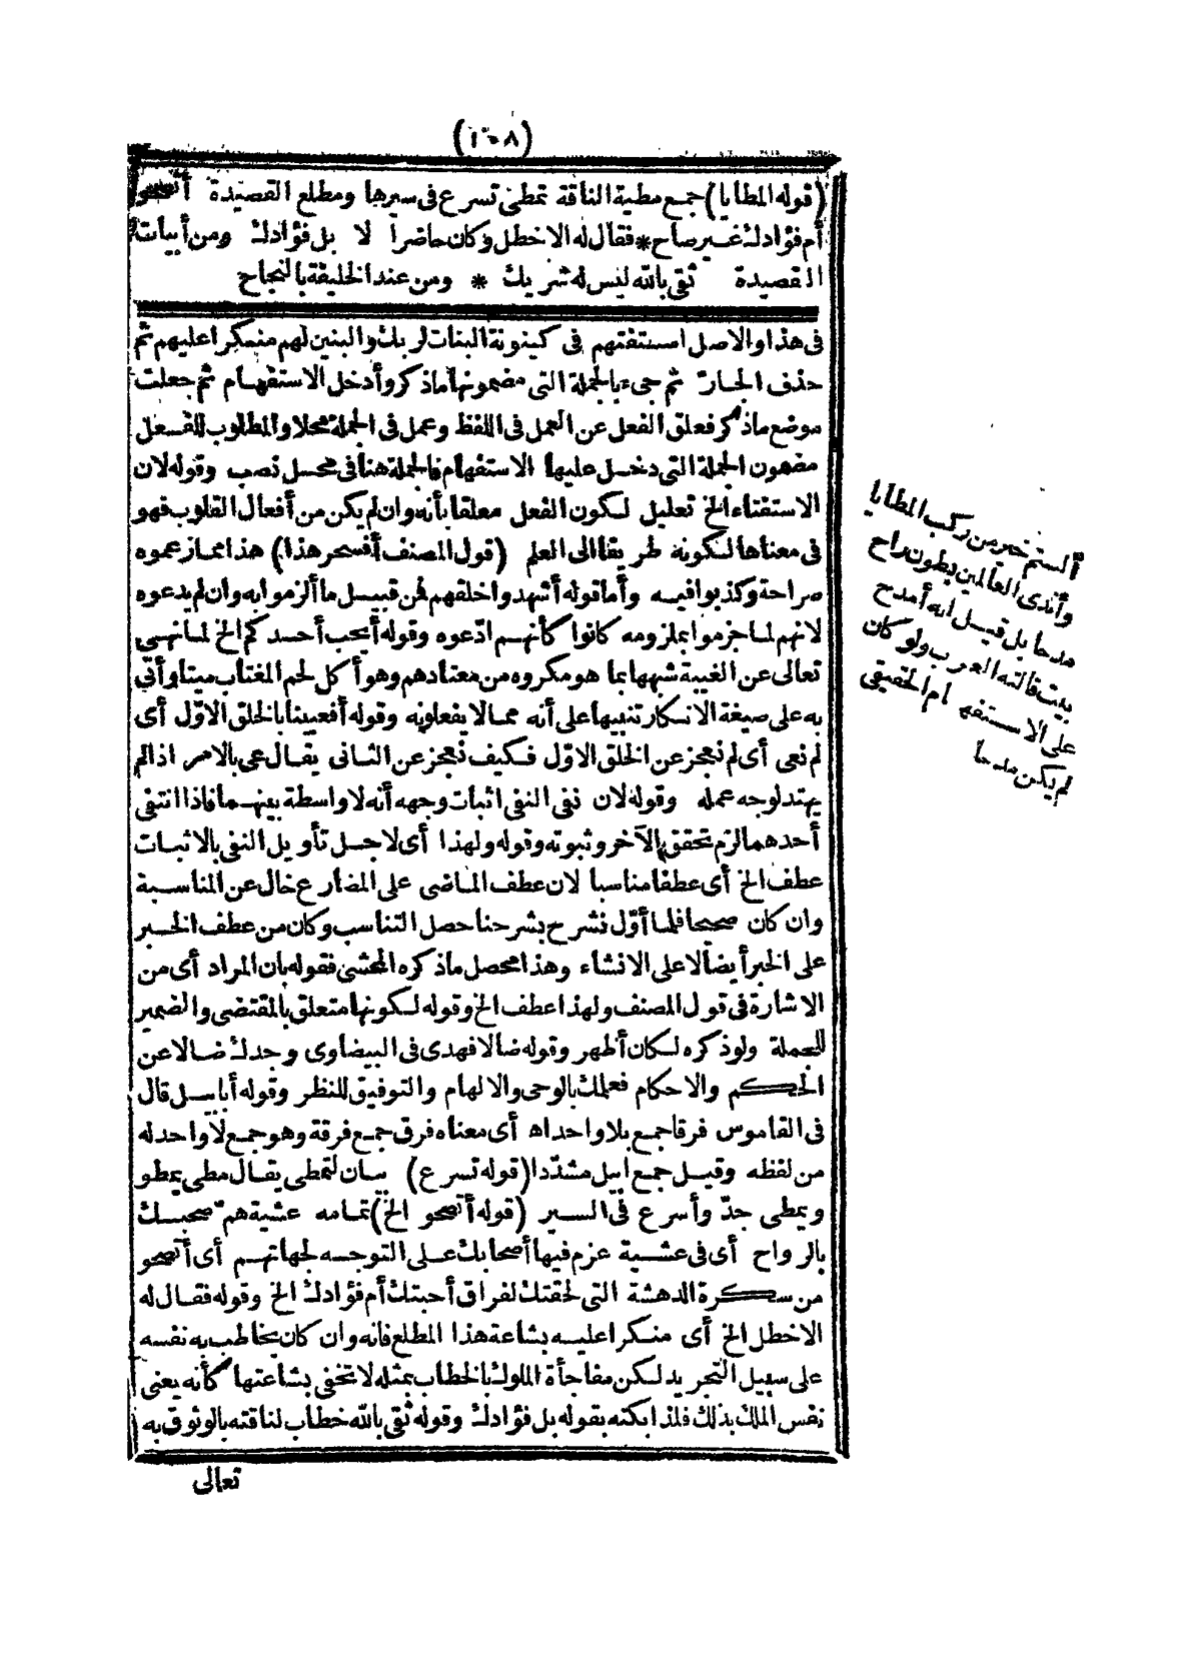 (١٠٨)
(قوله المطايا) جمع مطية الناقة تمطى تسرع فى سيرها ومطلع القصيدة أتصحو
أم فؤادك غير صاح * فقال له الاخطل وكان حاضرا لا بل فؤادك ومن أبيات
القصيدة ثقى بالله ليس له شريك * ومن عند الخليفة بالنجاح
فى هذا والاصل استفتهم فى كينونة البنات لربك والبنين لهم منكرا عليهم ثم
حذف الجار ثم جىء بالجملة التى مضمونها ماذكر وأدخل الاستفهام ثم جعلت
موضع ماذكر فعلق الفعل عن العمل فى اللفظ وعمل فى الجملة محلا والمطلوب للفعل
مضمون الجملة التى دخل عليها الاستفهام فالجملة هنا فى محل نصب وقوله لان
الاستفتاء الخ تعليل لكون الفعل معلقا بأنه وان لم يكن من أفعال القلوب فهو
فى معناها لكونه طريقا الى العلم (قول المصنف أفسحر هذا) هذا مما زعموه
صراحة وكذبوا فيه وأما قوله أشهدوا خلقهم فمن قبيل ما ألزموا به وان لم يدعوه
لانهم لما جزموا بملزومه كانوا كأنهم ادّعوه وقوله أيحب أحدكم الخ لما نهى
تعالى عن الغيبة شبهها بما هو مكروه من معتادهم وهو أكل لحم المغتاب ميتا وأتى
به على صيغة الانكار تنبيها على أنه مما لا يفعلونه وقوله أفعيينا بالخلق الاوّل أى
لم نعى أى لم نعجز عن الخلق الاوّل فكيف نعجز عن الثانى يقال عى بالامر اذا لم
يهتد لوجه عمله وقوله لان نفى النفى اثبات وجهه أنه لا واسطة بينهما فاذا انتفى
أحدهما لزم تحقق الآخر وثبوته وقوله ولهذا أى لاجل تأويل النفى بالاثبات
عطف الخ أى عطفا مناسبا لان عطف الماضى على المضارع خال عن المناسبة
وان كان صحيحا فلما أوّل نشرح بشرحنا حصل التناسب وكان من عطف الخبر
على الخبر أيضا لا على الانشاء وهذا محصل ما ذكره المحشى فقوله بان المراد أى من
الاشارة فى قول المصنف ولهذا عطف الخ وقوله لكونها متعلق بالمقتضى والضمير
للجملة ولو ذكره لكان أظهر وقوله ضالا فهدى فى البيضاوى وجدك ضالا عن
الحكم والاحكام فعلمك بالوحى والالهام والتوفيق للنظر وقوله أبابيل قال
فى القاموس فرقا جمع بلا واحد اه أى معناه فرق جمع فرقة وهو جمع لا واحد له
من لفظه وقيل جمع ابيل مشدّدا (قوله تسرع) بيان لتمطى يقال مطى يمطو
ويمطى جدّ وأسرع فى السير (قوله أتصحو الخ) تمامه عشية هم صحبك
بالرواح أى فى عشية عزم فيها أصحابك على التوجه لجهاتهم أى أتصحو
من سكرة الدهشة التى لحقتك لفراق أحبتك أم فؤادك الخ وقوله فقال له
الاخطل الخ أى منكرا عليه بشاعة هذا المطلع فانه وان كان يخاطب به نفسه
على سبيل التجريد لكن مفاجأة الملوك بالخطاب بمثله لا تخفى بشاعتها كأنه يعنى
نفس الملك بذلك فلذا بكته بقوله بل فؤادك وقوله ثقى بالله خطاب لناقته بالوثوق به
تعالى
ألستم خير من ركب المطايا
وأندى العالمين بطون راح
مدحا بل قيل انه أمدح
بيت قالته العرب ولو كان
على الاستفهام الحقيقى
لم يكن مدحا